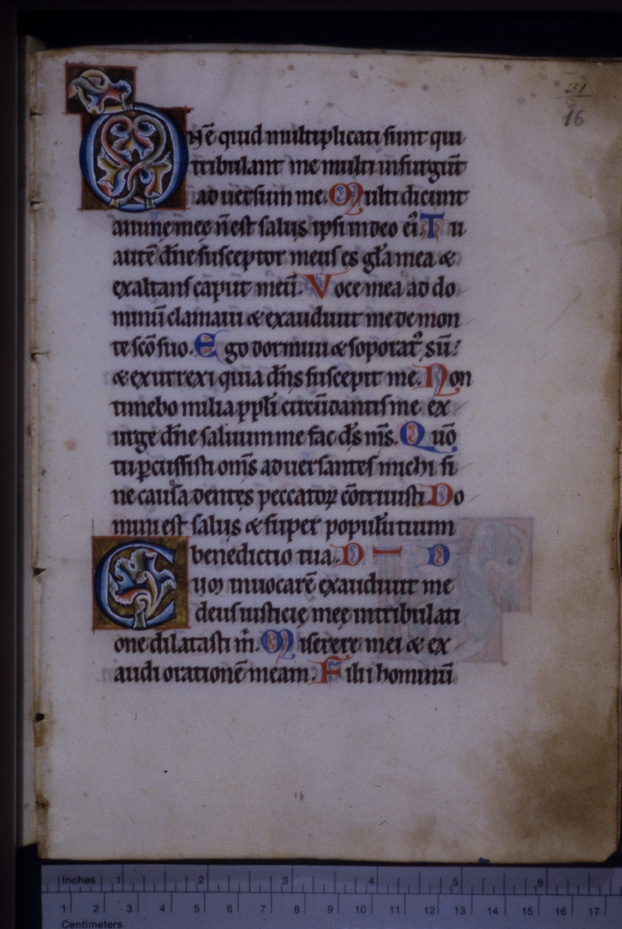 31
16
Dnē quid multiplicati sunt qui
tribulant me multi insurgūt
aduersum me. Multi dicunt
anime meę ñ est salus ipsi in deo ei. Tu
autē dñe susceptor meus es gła mea &
exaltans caput meū. Voce mea ad do
minū clamaui & exaudiuit me de mon
te scō suo. Ego dormiui & soporat᷒ sū:
& exurrexi quia dñs suscepit me. Non
timebo milia ppłi circūdantis me ex
urge dñe saluum me fac ds ms. Qūo
tu pcussisti oms aduersantes michi si
ne causa dentes peccatoꝝ cōtriuisti Do
mini est salus & super populū tuum
benedictio tua. D — D
Cum inuocarē exaudiuit me
deus iusticię meę in tribulati
one dilatasti m̄. Miserere mei & ex
audi orationē meam. Filii hominū
Inches 1 2 3 4 5 6
1 2 3 4 5 6 7 8 9 10 11 12 13 14 15 16 17
Centimeters